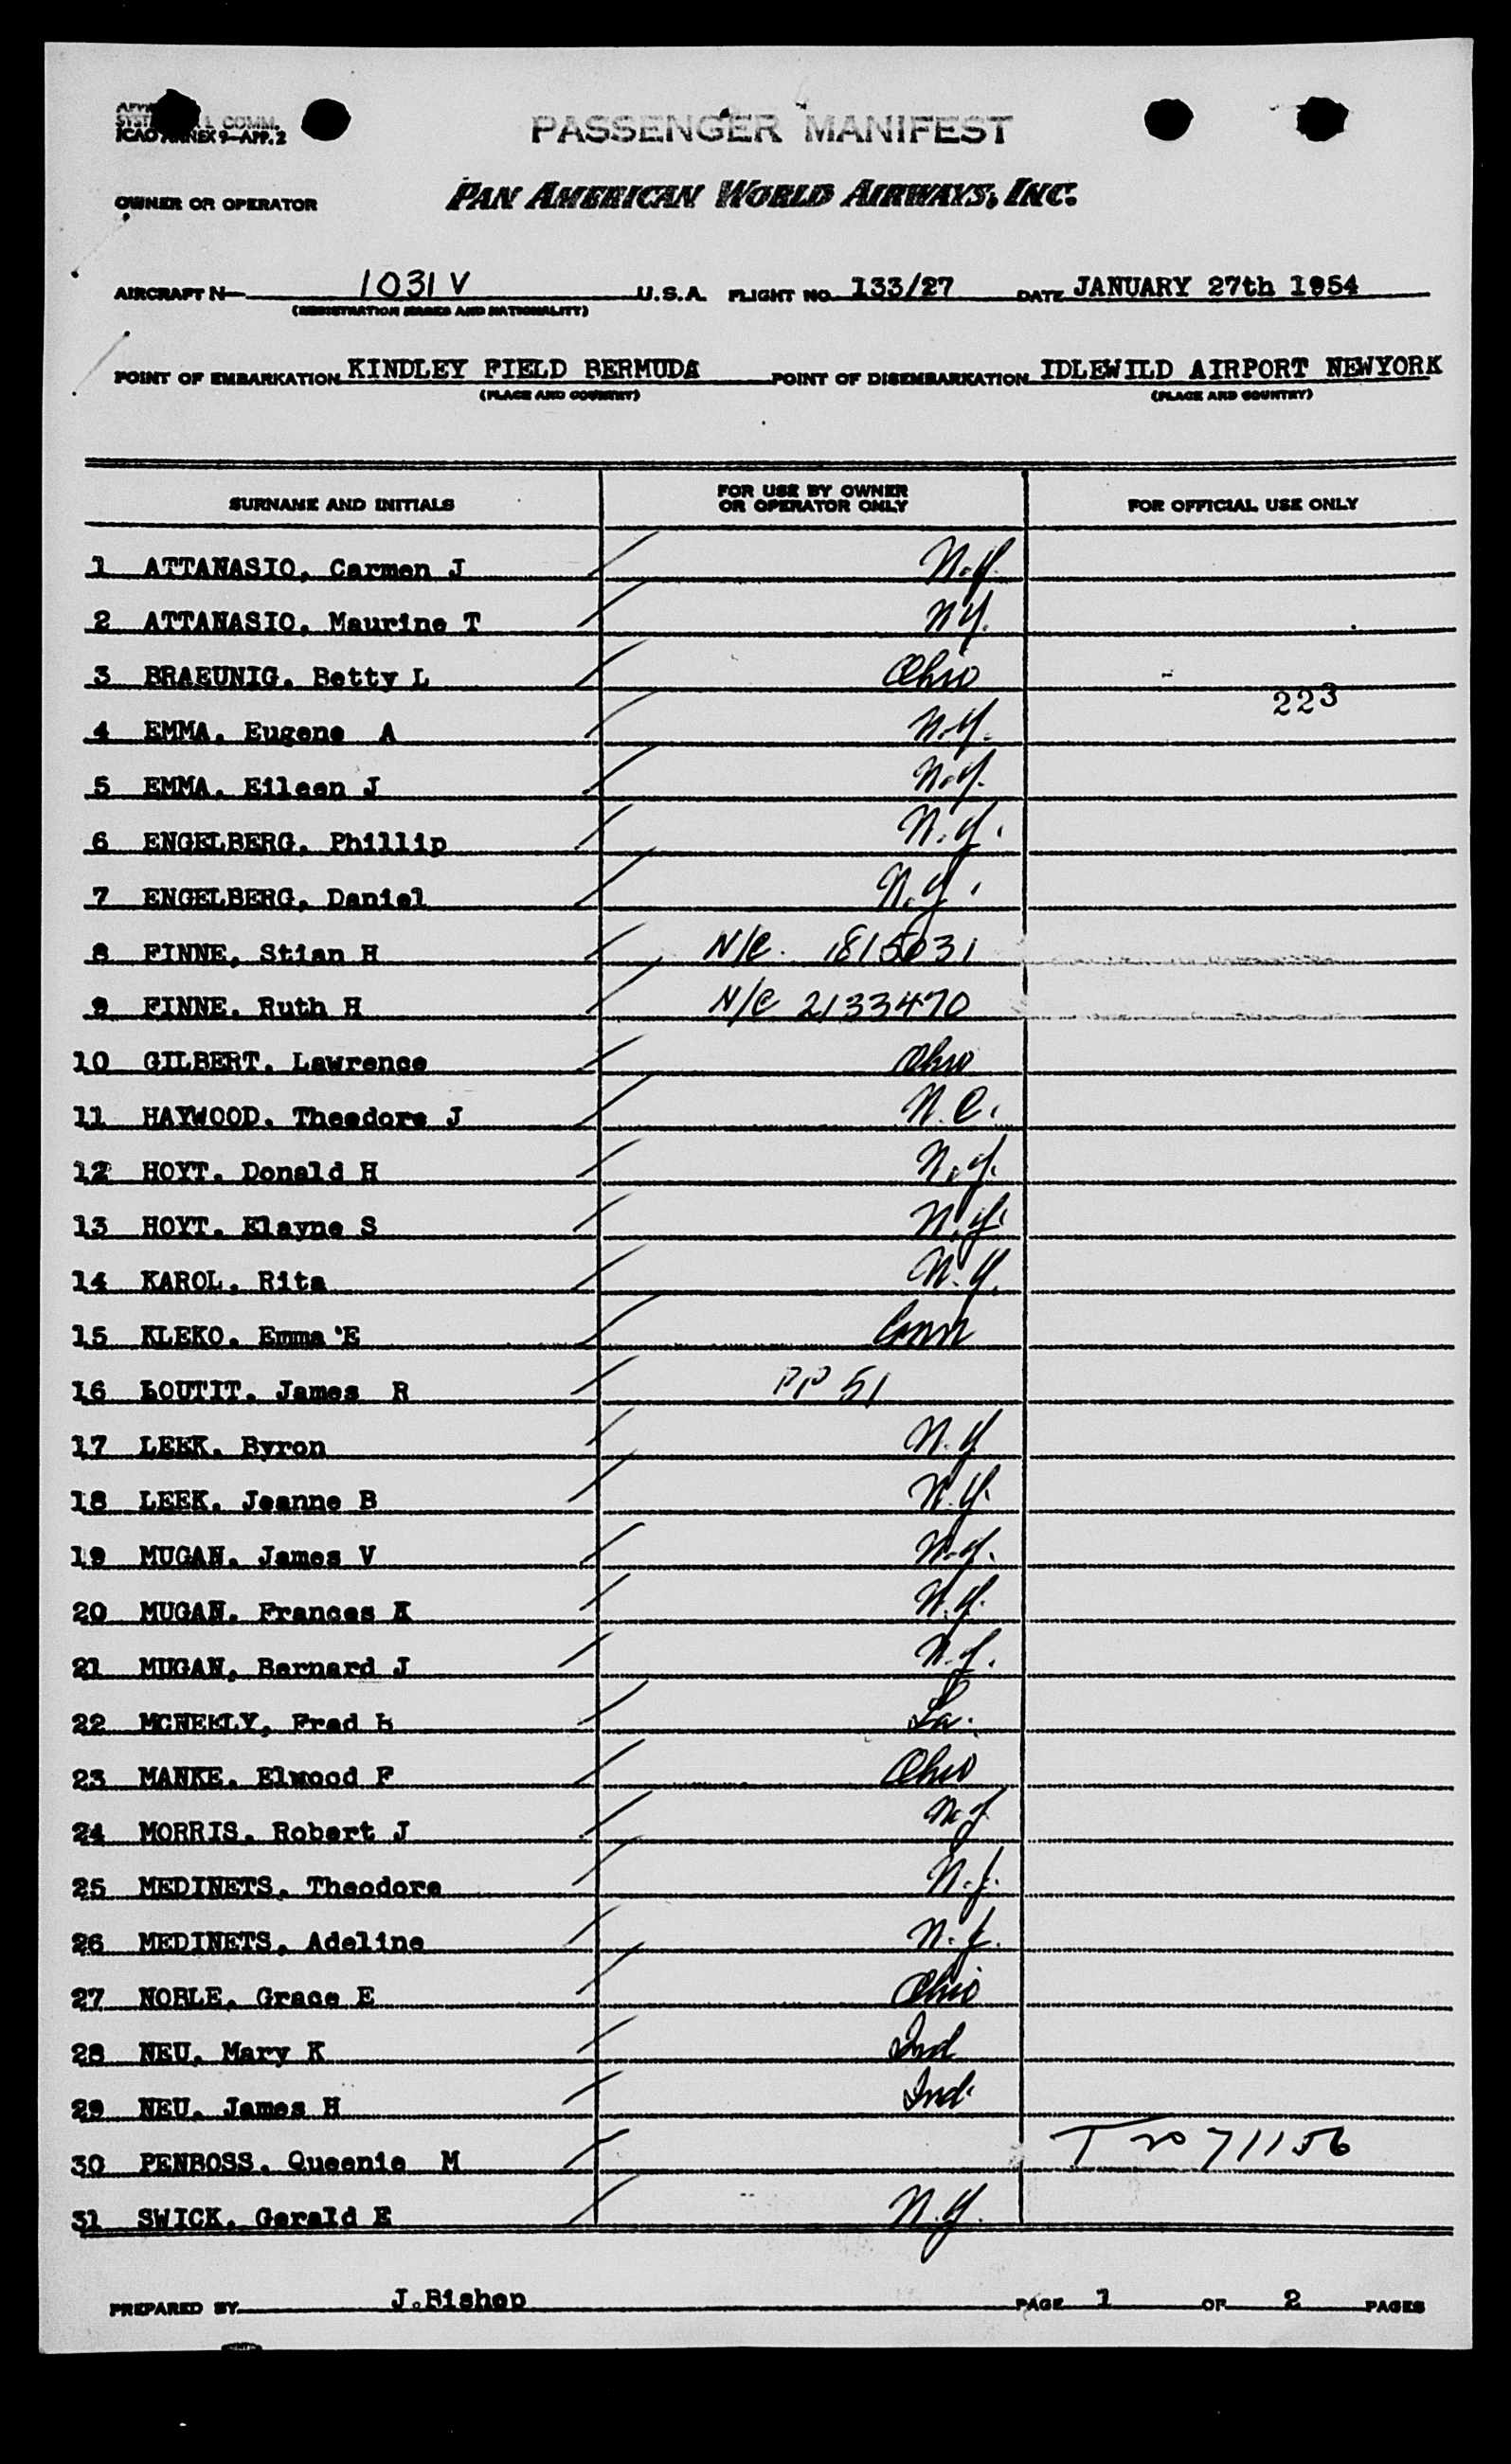 COMM.
ICAO ANNEX 9—APP. 2
PASSENGER MANIFEST
OWNER OR OPERATOR PAN AMERICAN WORLD AIRWAYS, INC.
AIRCRAFT N— 1031V U.S.A. FLIGHT NO. 133/27 DATE JANUARY 27th 1954
(REGISTRATION MARKS AND NATIONALITY)
POINT OF EMBARKATION KINDLEY FIELD BERMUDA POINT OF DISEMBARKATION IDLEWILD AIRPORT NEWYORK
(PLACE AND COUNTRY) (PLACE AND COUNTRY)
SURNAME AND INITIALS FOR USE BY OWNER OR OPERATOR ONLY FOR OFFICIAL USE ONLY
1 ATTANASIO, Carmen J N.Y.
2 ATTANASIO, Maurine T NY.
3 BRAEUNIG, Betty L Ohio
223
4 EMMA, Eugene A N.Y.
5 EMMA, Eileen J N.Y.
6 ENGELBERG, Phillip N.Y.
7 ENGELBERG, Daniel N.Y.
8 FINNE, Stian H N/C. 1815031
9 FINNE, Ruth H N/C 2133470
10 GILBERT, Lawrence Ohio
11 HAYWOOD, Theodore J N.C.
12 HOYT, Donald H N.Y.
13 HOYT, Elayne S N.Y.
14 KAROL, Rita N.Y.
15 KLEKO, Emma E Conn
16 LOUTIT, James R PP 51
17 LEEK, Byron N.Y
18 LEEK, Jeanne B N.Y.
19 MUGAN, James V N.Y.
20 MUGAN, Frances K N.Y.
21 MUGAN, Bernard J N.Y.
22 MCNEELY, Fred La.
23 MANKE, Elwood F Ohio
24 MORRIS, Robert J
25 MEDINETS, Theodore N.J.
26 MEDINETS, Adeline N.J.
27 NOBLE, Grace E Ohio
28 NEU, Mary K Ind
29 NEU, James H Ind.
30 PENBOSS, Queenie M 71156
31 SWICK, Gerald E N.Y.
PREPARED BY J.Bishop PAGE 1 OF 2 PAGES